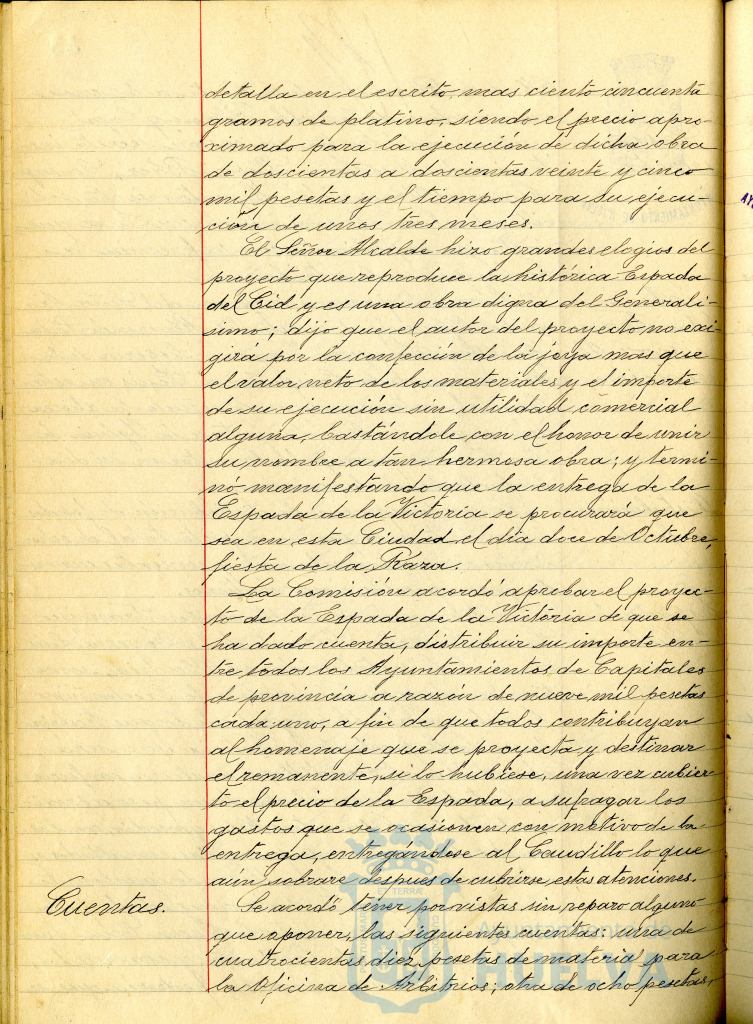 detalla en el escrito, mas ciento cincuenta
gramos de platino, siendo el precio apro-
ximado para la ejecución de dicha obra
de doscientas a doscientas veinte y cinco
mil pesetas y el tiempo para su ejecu-
ción de unos tres meses.
El Señor Alcalde hizo grandes elogios del
proyecto que reproduce la histórica Espada
del Cid y es una obra digna del Generali-
simo; dijo que el autor del proyecto no exi-
girá por la confección de la joya mas que
el valor neto de los materiales y el importe
de su ejecución sin utilidad comercial
alguna, bastándole con el honor de unir
su nombre a tan hermosa obra; y termi-
nó manifestando que la entrega de la
Espada de la Victoria se procurará que
sea en esta Ciudad el día doce de Octubre,
fiesta de la Raza.
La Comisión acordó aprobar el proyec-
to de la Espada de la Victoria de que se
ha dado cuenta, distribuir su importe en-
tre todos los Ayuntamientos de Capitales
de provincia a razón de nueve mil pesetas
cada uno, a fin de que todos contribuyan
al homenaje que se proyecta y destinar
el remanente, si lo hubiese, una vez cubier-
to el precio de la Espada, a sufragar los
gastos que se ocasionen con motivo de la
entrega, entregándose al Caudillo lo que
aún sobrare después de cubrirse estas atenciones.
Cuentas.
Se acordó tener por vistas sin reparo alguno
que oponer, las siguientes cuentas: una de
cuatrocientas diez pesetas de material para
la Oficina de Arbitrios; otra de ocho pesetas,
HUELVA